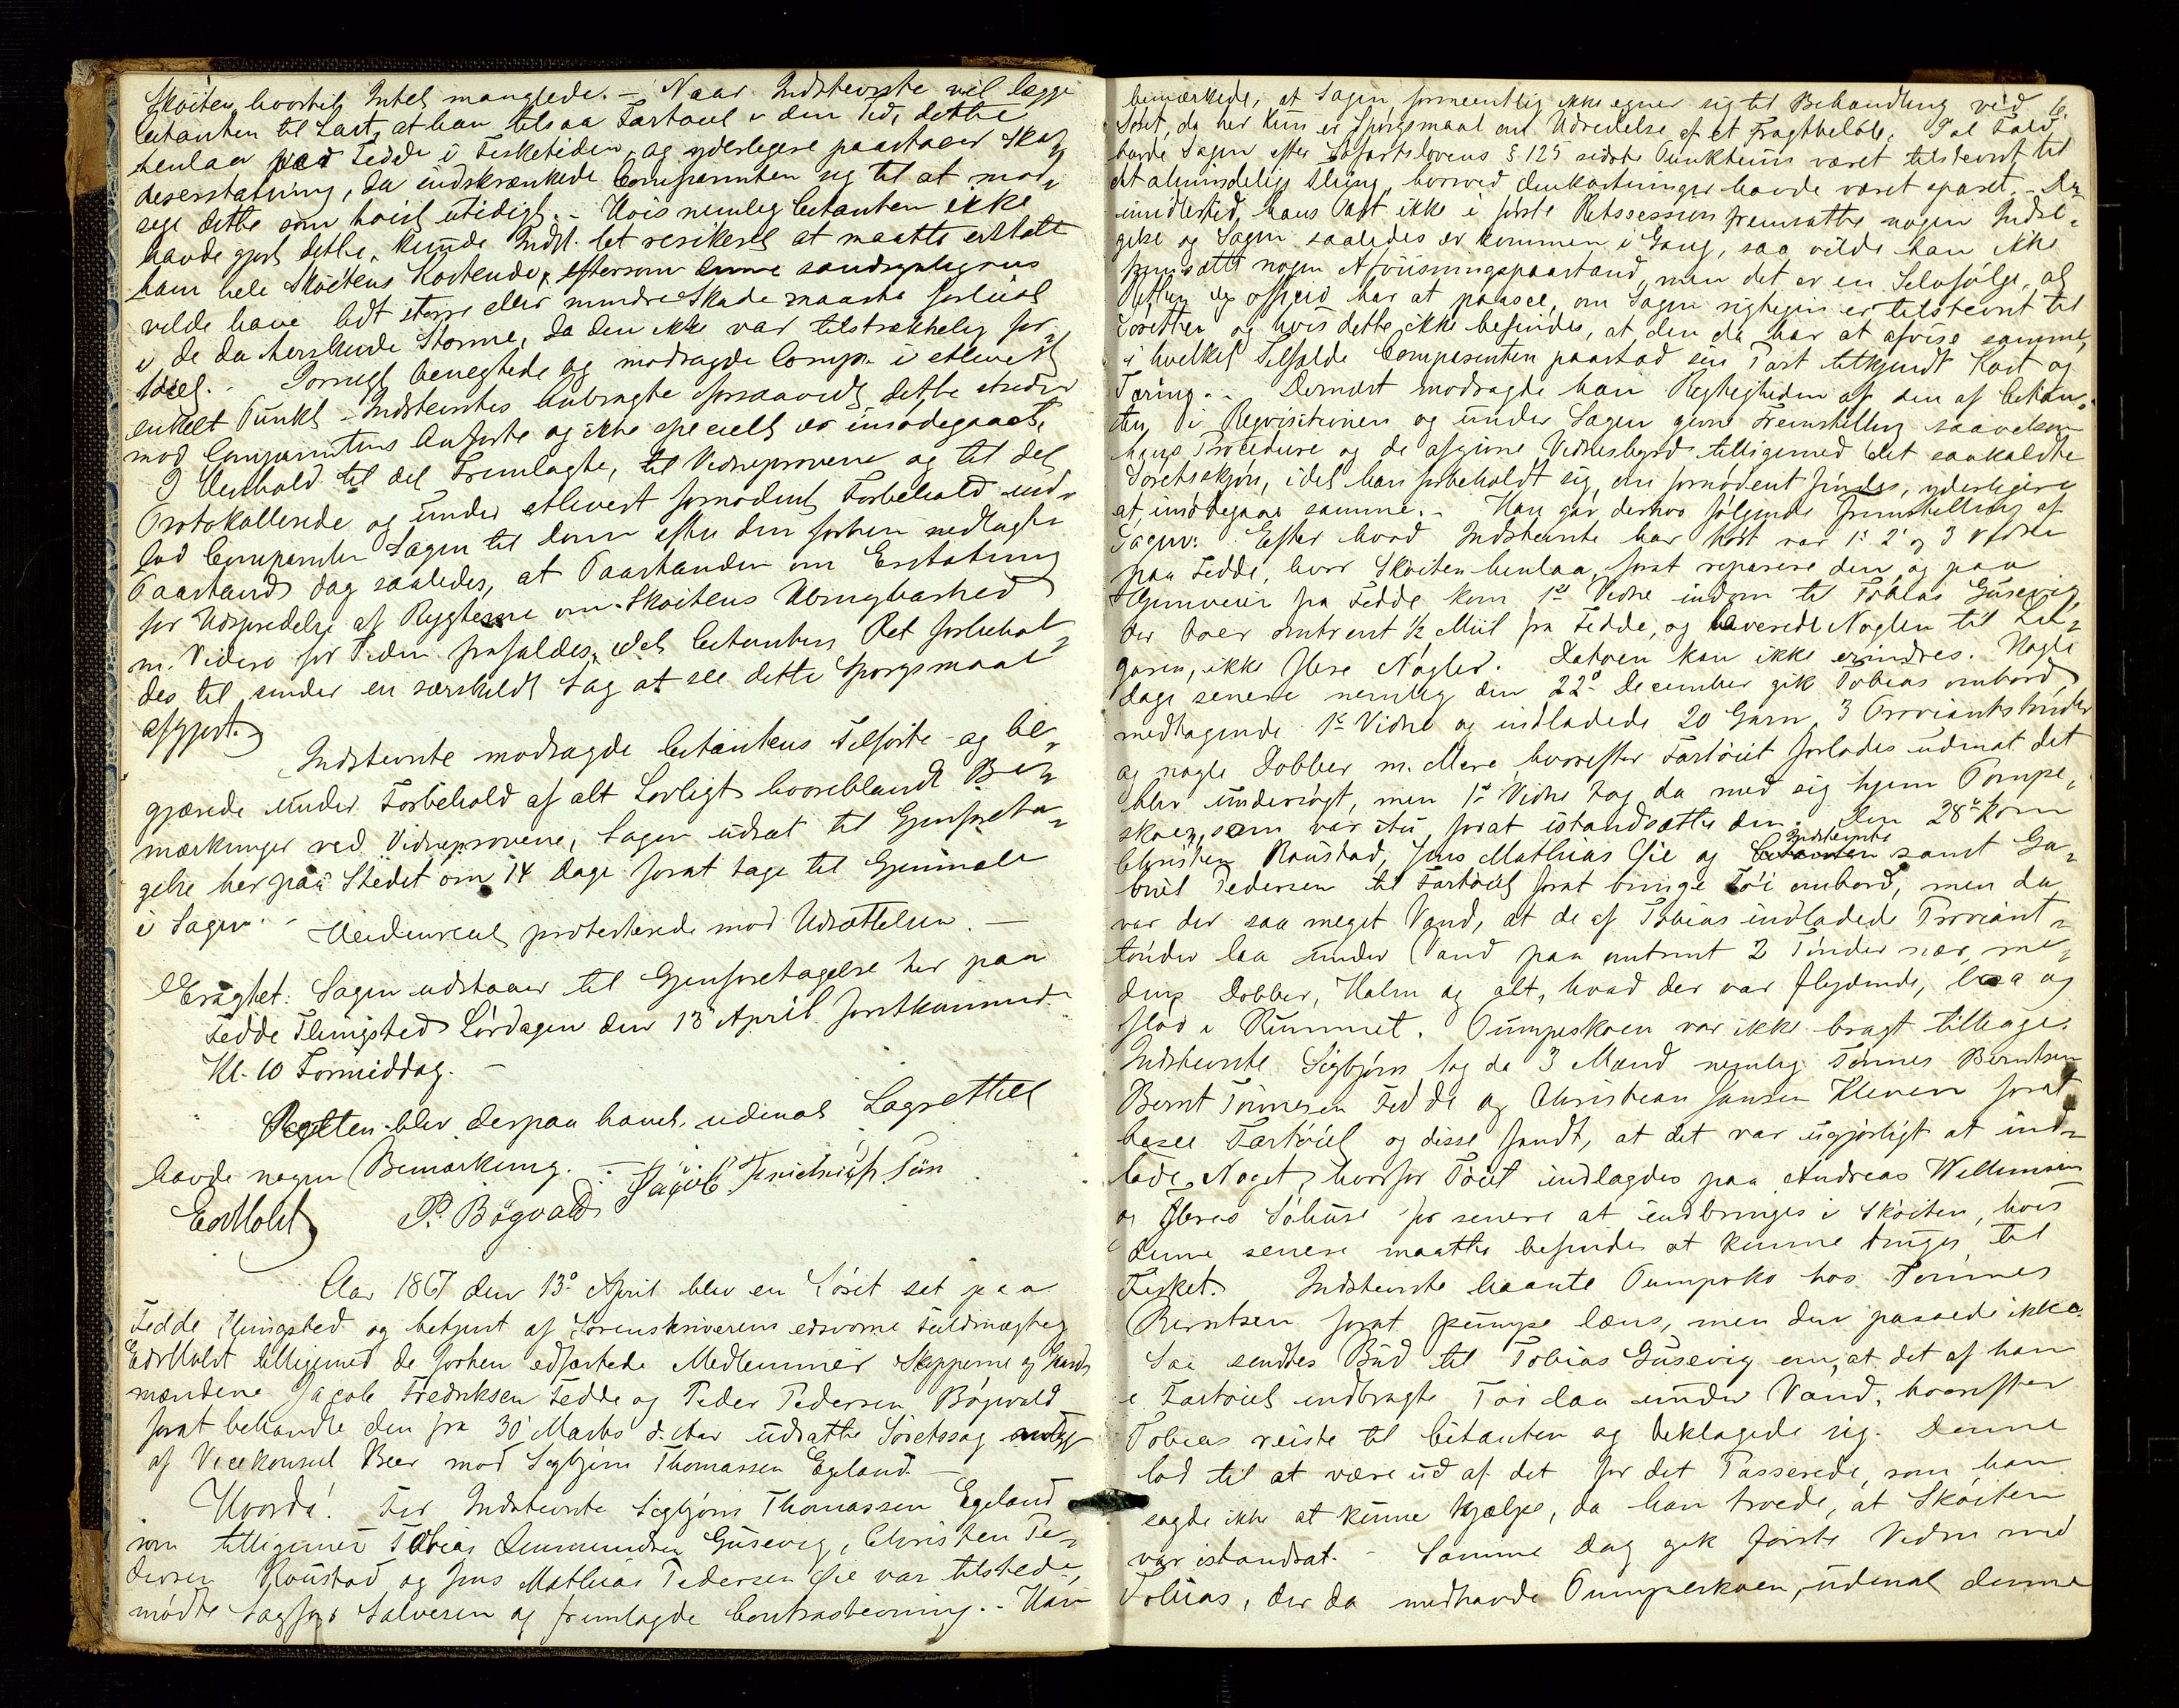 Skøiten, hvortil Intet manglede. – Naar Indstevnte vil lægge
Citanten til Last, at han tilsaa Fartøiet i den Tid, dette
henlaa paa Fedde i Fisketiden, og yderligere paastaaer Ska-
deserstatning, da indskrænkede Comparenten sig til at mod-
sige dette som høist utidigt. – Hvis nemlig Citanten ikke
havde gjort dette, kunde Indst. let resikeret at maatte erstatte
ham hele Skøitens Kostende, eftersom denne sandsynligvis
vilde have lidt større eller mindre Skade maaske forliist
i de da herskende Storme, da den ikke var tilstrækkelig for-
tøiet. – Forøvrigt benegtede og modsagde Comp. i ethvert
enkelt Punkt Indstevntes Anbragte forsaavidt dette strider
mod Comparentens Anførte og ikke specielt er imødegaaet.
I Henhold til det Fremlagte, til Vidneprovene og til det
Protokollerede og under ethvert fornødent Forbehold ind-
lod Comparenten Sagen til Dom efter den forhen nedlagte
Paastand dog saaledes, at Paastanden om Erstatning
for Udspredelse af Rygterne om Skøitens Ubrugbarhed
m. Videre for Tiden frafaldes, idet Citantens Ret forbehol-
des til under en særskildt Sag at see dette Spørgsmaal
afgjort.
Indstevnte modsagde Citantens Tilførte og be-
gjærede under Forbehold af alt Lovligt hvoriblandt Be-
mærkninger ved Vidneprovene, Sagen udsat til Gjenforeta-
gelse her paa Stedet om 14 Dage forat tage til Gjenmæle
i Sagen. –
Heidenreich protesterede mod Udsættelsen. –
Eragtet: Sagen udstaaer til Gjenforetagelse her paa
Fedde Thingsted Lørdagen den 13 April førstkommende
Kl. 10 Formiddag. –
Retten blev derpaa hævet, udenat Lagrettet
havde nogen Bemærkning. –
Jacob Fredriksen Fedde
EodMoldt P. Bøgvald
Aar 1867 den 13de April blev en Søret sat paa
Fedde Thingsted og betjent af Sorenskriverens edsvorne Fuldmægtig
EodMoldt tilligemed de forhen edfæstede Medlemmer Skipperne og Gaard-
mændene Jacob Fredriksen Fedde og Peder Pedersen Bøgvald
forat behandle den fra 30 Marts d. Aar udsatte Søretssag anlagt
af Vicekonsul Beer mod Sigbjørn Thomassen Egeland. –
Hvorda! For Indstevnte Sigbjørn Thomassen Egeland
som tilligemed Tobias Gusevig, Christen Pe-
dersen Roustad og Jens Mathias Pedersen Øie var tilstede,
mødte Sagfør Salvesen og fremlagde Contrastevning. – Han
6.
bemærkede, at Sagen formeentlig ikke egner sig til Behandling ved
Søret, da her kun er Spørgsmaal om Udredelse af et Fragtbeløb. I al Fald
burde Sagen efter Søfartslovens § 125 sidste Punktum været tilstevnt til
det almindelige Thing, hvorved Omkostninger havde været sparet. – Da
imidlertid, hans Part ikke i første Retssession fremsatte nogen Indsi-
gelse og Sagen saaledes er kommen i Gang, saa vilde han ikke
fremsætte nogen Afviisningspaastand, men det er en Selvfølge, at
Retten ex officio har at paasee, om Sagen rigtigen er tilstevnt til
Søretten og hvis dette ikke befindes, at den da har at afvise samme,
i hvilket Tilfælde Comparenten paastod sin Part tilkjendt Kost og
Tæring. – Dernæst modsagde han Rigtigheden af den af Citan-
ten, i Reqvisitionen og under Sagen givne Fremstilling saavelsom
hans Procedure og de afgivne Vidnesbyrd tilligemed det saakaldte
Søretsskjøn, idet han forbeholdt sig, om fornødent findes, yderligere
at imødegaae samme. – Han gav derhos følgende Fremstilling af
Sagen: Efter hvad Indstevnte har hørt var 1ste 2det og 3 Vidne
paa Fedde, hvor Skøiten henlaa, forat reparere den og paa
Hjemveien fra Fedde kom 1ste Vidne indom til Tobias Gusevig,
der boer omtrent ½ Miil fra Fedde, og leverede Nøglen til Lu-
garen, ikke flere Nøgler. Datoen kan ikke erindres. Nogle
Dage senere nemlig den 22de December gik Tobias ombord,
medtagende 1ste Vidne og indladede 20 Garn, 3 Proviantstønder
og nogle Dobber m. Mere, hvorefter Fartøiet forlodes udenat det
blev undersøgt, men 1ste Vidne tog da med sig hjem Pompe-
skoen, som var itu, forat istandsætte den. Den 28de kom
Christen Roustad, Jens Mathias Øie og Indstevnte samt Ga-
briel Pedersen til Fartøiet forat bringe Tøi ombord, men da
var der saa meget Vand, at de af Tobias indladede Proviant-
tønder laa under Vand paa omtrent 2 Tønder nær, me-
dens Dobber, Halm og alt, hvad der var flydende, laa og
flød i Rummet. Pumpeskoen var ikke bragt tilbage.
Indstevnte Sigbjørn tog da 3 Mænd nemlig Tønnes Berntsen
Bernt Tønnesen Fedde og Christian Jansen Kleven forat
besee Fartøiet og disse fandt, at det var ugjørligt at ind-
lade Noget, hvorfor Tøiet indlagdes paa Andreas Willumsen
og Fleres Søhuse for senere at indbringes i Skøiten, hvis
denne senere maatte befindes at kunne bruges til
Fisket. Indstevnte laante Pumpesko hos Tønnes
Berntsen forat pumpe læns, men den passede ikke.
Saa sendtes Bud til Tobias Gusevig om, at det af ham
i Fartøiet indbragte Tøi laa under Vand, hvorefter
Tobias reiste til Citanten og beklagede sig. Denne
lod til at være ud af det for det Passerede, som han
sagde ikke at kunne hjælpe, da han troede, at Skøiten
var istandsat. – Samme Dag gik første Vidne med
Tobias, der da medhavde Pumpeskoen, udenat denne